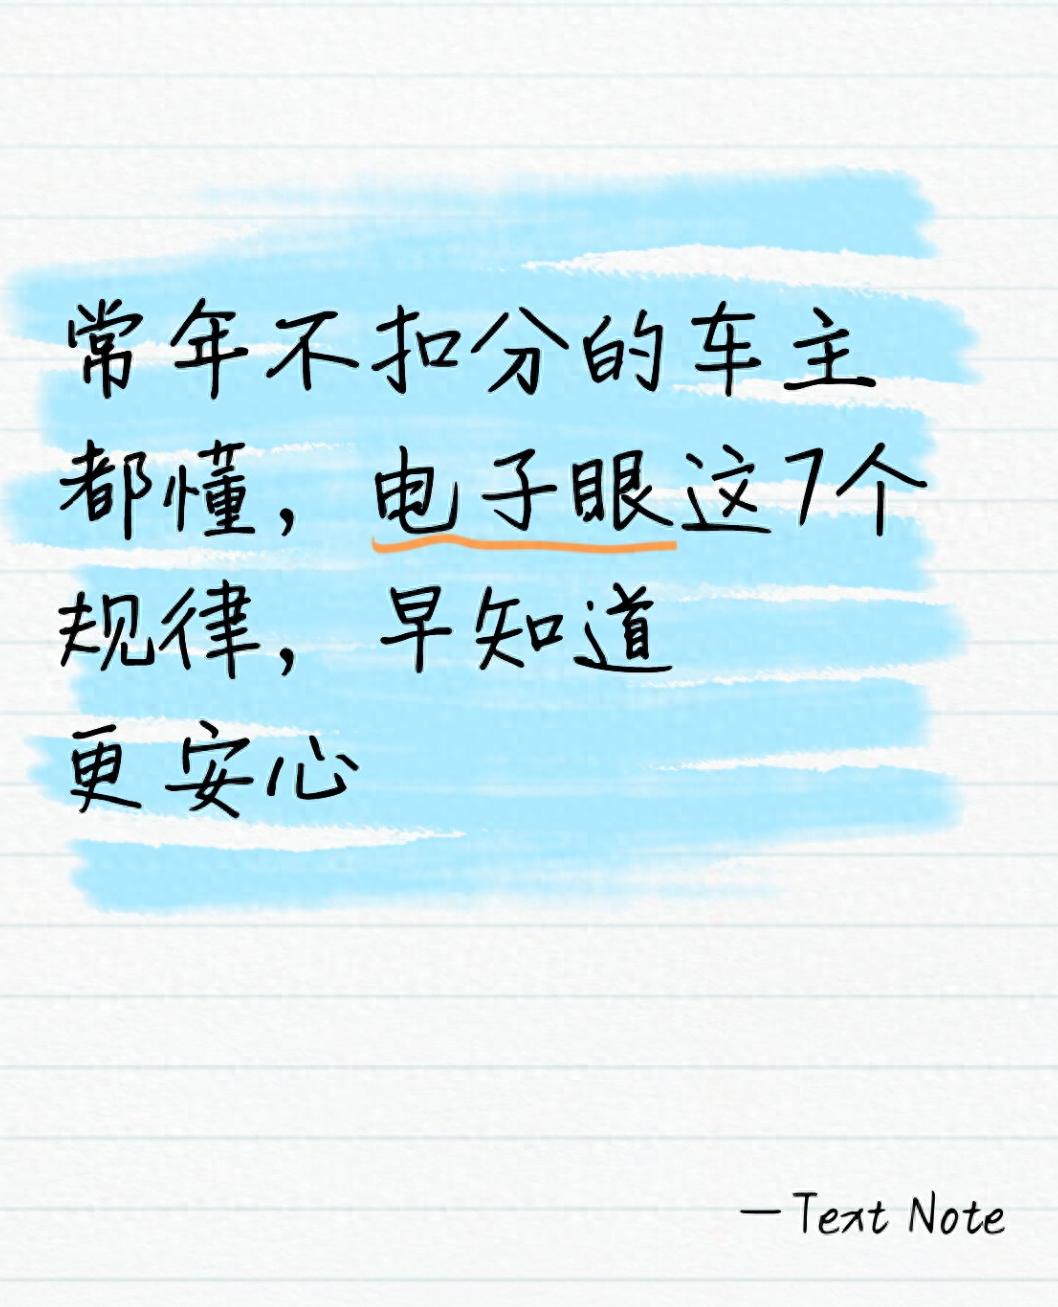 常年不扣分的车主
都懂，电子眼这7个
规律，早知道
更安心
—Text Note